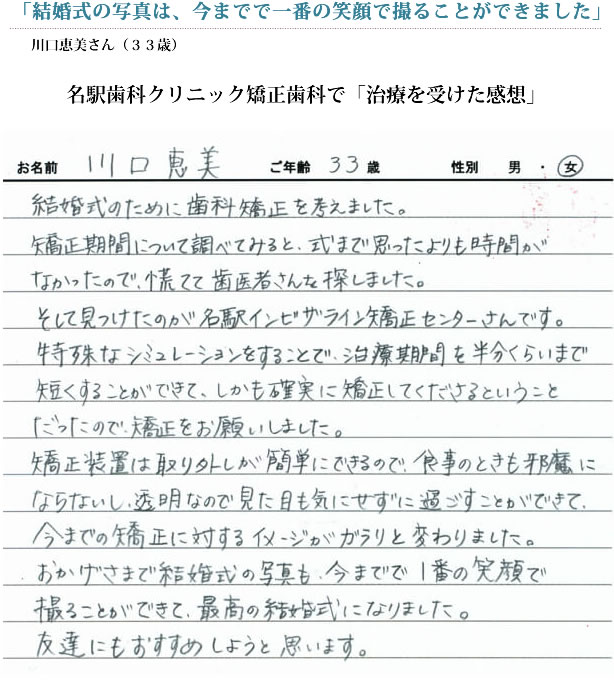 「結婚式の写真は、今までで一番の笑顔で撮ることができました」
川口恵美さん（３３歳）
名駅歯科クリニック矯正歯科で「治療を受けた感想」
お名前 川口 恵美 ご年齢 33 歳 性別 男 ・ 女
結婚式のために歯科矯正を考えました。
矯正期間について調べてみると、式まで思ったよりも時間が
なかったので、慌てて歯医者さんを探しました。
そして見つけたのが名駅インビザライン矯正センターさんです。
特殊なシミュレーションをすることで、治療期間を半分くらいまで
短くすることができて、しかも確実に矯正してくださるということ
だったので、矯正をお願いしました。
矯正装置は取り外しが簡単にできるので、食事のときも邪魔に
ならないし、透明なので見た目も気にせずに過ごすことができて、
今までの矯正に対するイメージがガラリと変わりました。
おかげさまで結婚式の写真も、今までで1番の笑顔で
撮ることができて、最高の結婚式になりました。
友達にもおすすめしようと思います。